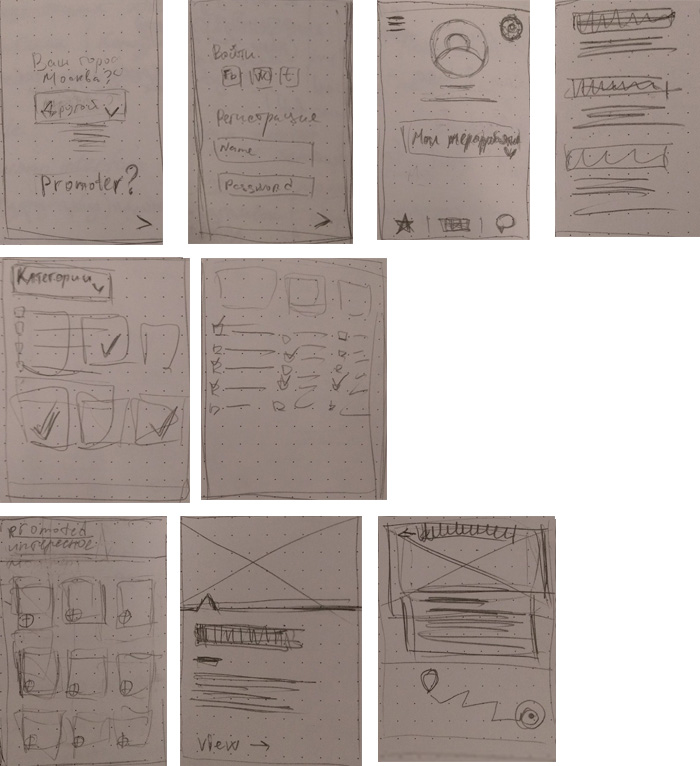 Ваш город
Москва?
Другой
Promoter?
>
Войти
Fb
VK
t
Регистрация
Name
Password
>
Мои мероприятия
Категории
promoted
интересное
view →